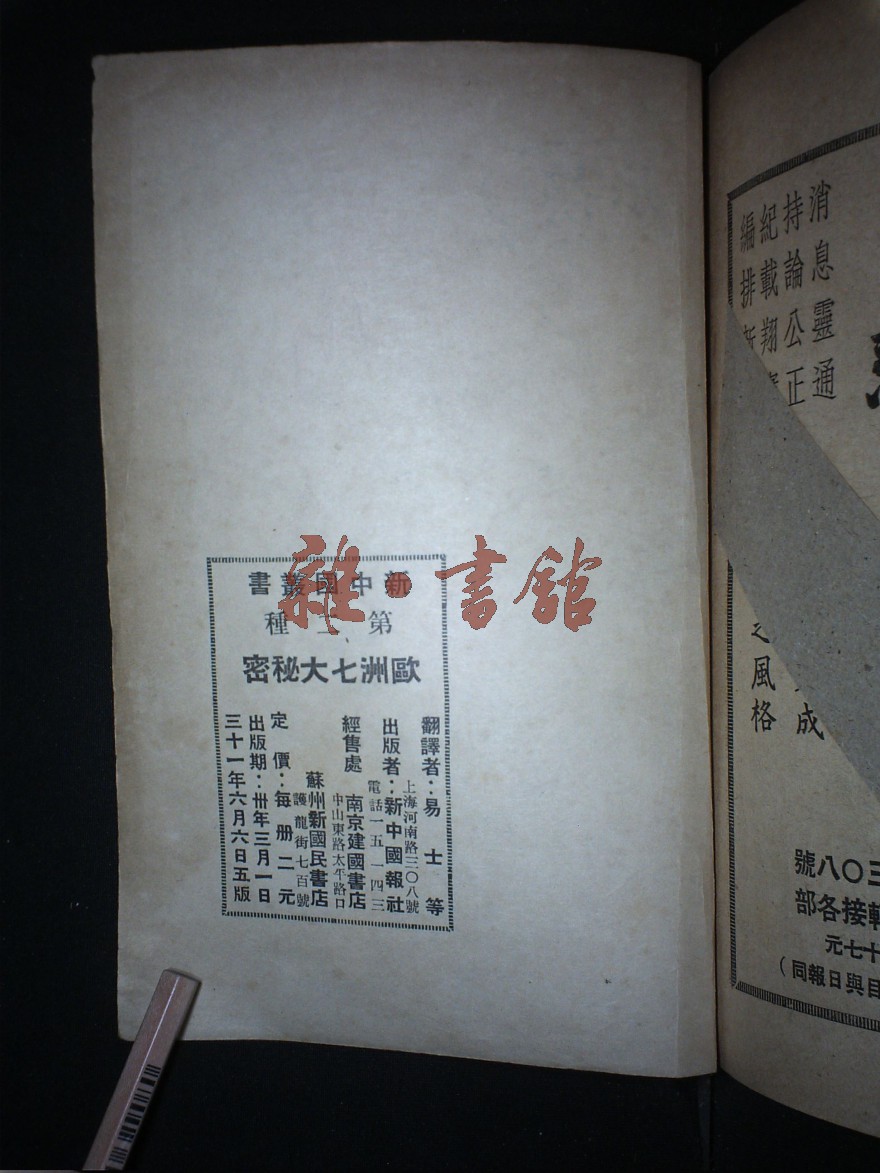 新中國叢書
第二種
歐洲七大秘密
翻譯者：易士等
上海河南路三〇八號
出版者：新中國報社
電話一五一四三
經售處
南京建國書店
中山東路太平路口
蘇州新國民書店
護龍街七百號
定價：每册二元
出版期：卅年三月一日
三十一年六月六日五版
雜·書館
消息靈通
持論公正
紀載翔
編排新
成
之風格
三〇八號
轉接各部
十七元
目與日報同）